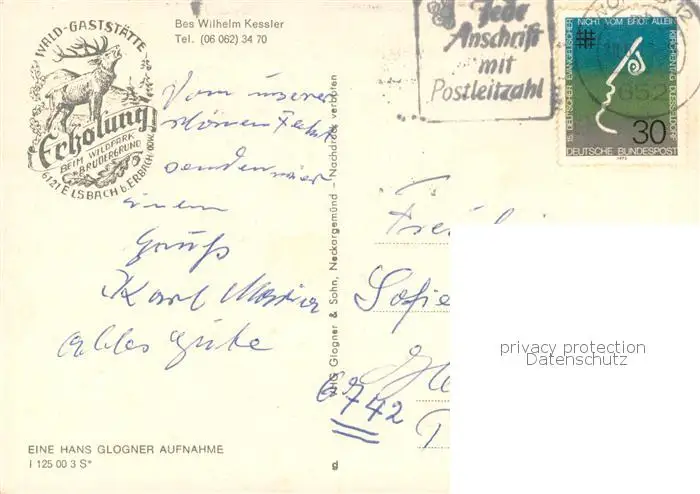 WALD-GASTSTÄTTE
Erholung
BEIM WILDPARK
BRUDERGRUND
6121 ELSBACH b. ERBACH/ODW.
Bes Wilhelm Kessler
Tel. (06 062) 34 70
Jede
Anschrift
mit
Postleitzahl
652
15. DEUTSCHER EVANGELISCHER KIRCHENTAG DÜSSELDORF
NICHT VOM BROT ALLEIN
30
DEUTSCHE BUNDESPOST
1973
Vom unserer
schönen Fahrt
senden wir
einen
Gruß
Karl Maria
alles Gute
HG Glogner & Sohn, Neckargemünd - Nachdruck verboten
Sofie
6742
privacy protection
Datenschutz
EINE HANS GLOGNER AUFNAHME
I 125 00 3 S*
g